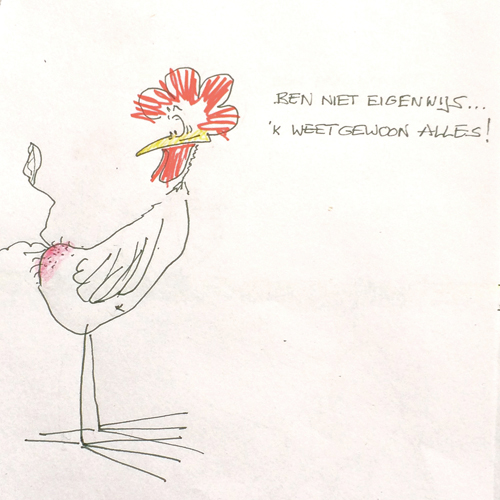 BEN NIET EIGENWIJS...
'K WEET GEWOON ALLES!